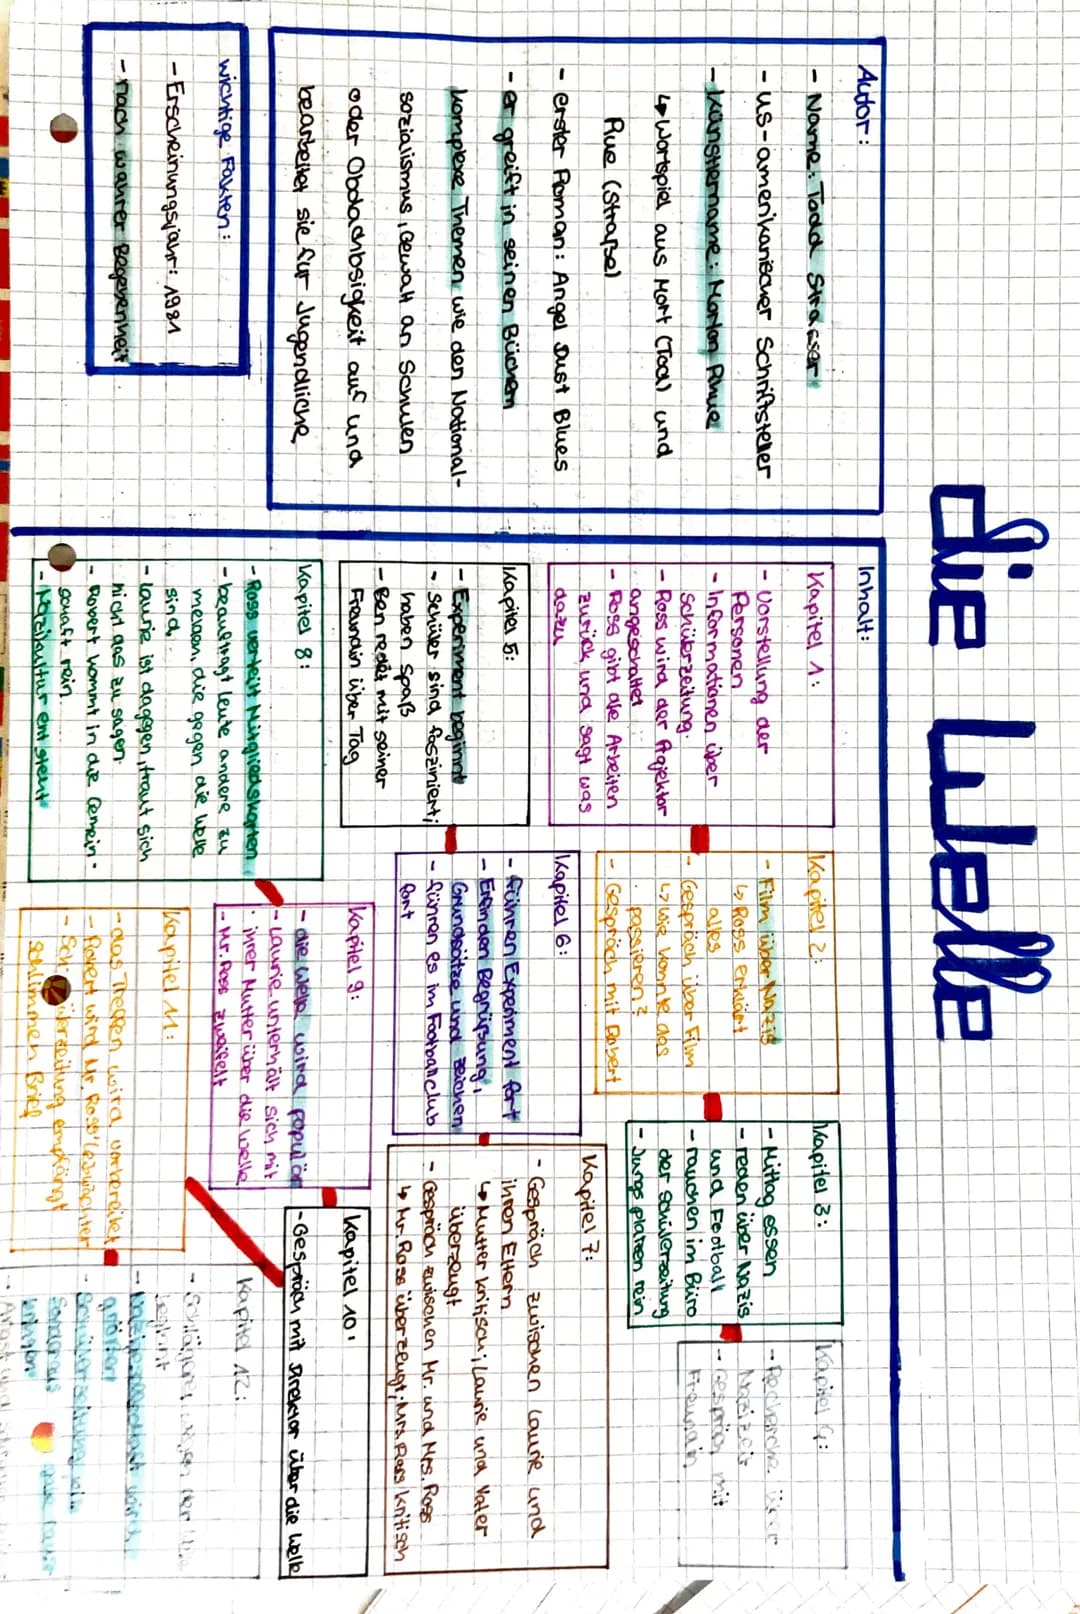 die Welle
Autor:
- Name: Todd Strasser
- us-amerikanischer Schriftsteller
- Künstlername: Morton Rhue
↳ Wortspiel aus Mort (Tod) und
Rue (Straße)
- erster Roman: Angel Dust Blues
- er greift in seinen Büchern
komplexe Themen wie den National-
sozialismus, Gewalt an Schulen
oder Obdachlosigkeit auf und
bearbeitet sie für Jugendliche
wichtige Fakten:
- Erscheinungsjahr: 1981
- nach wahrer Begebenheit
Inhalt:
Kapitel 1:
- Vorstellung der
Personen
- Informationen über
Schülerzeitung
- Ross wird der Projektor
angeschaltet
- Ross gibt die Arbeiten
zurück und sagt was
dazu
Kapitel 2:
- Film über Nazis
↳ Ross erklärt
alles
- Gespräch über Film
↳ wie konnte das
passieren?
- Gespräch mit Robert
Kapitel 3:
- Mittag essen
- reden über Nazis
und Football
- rauchen im Büro
der Schülerzeitung
- Jungs platzen rein
Kapitel 4:
- Recherche über
Nazizeit
- Gespräch mit
Freundin
Kapitel 5:
- Experiment beginnt
- Schüler sind fasziniert;
haben Spaß
- Ben redet mit seiner
Freundin über Tag
Kapitel 6:
- führen Experiment fort
- Erfinden Begrüßung,
Grundsätze und Zeichen
- führen es im Footballclub
fort
Kapitel 7:
- Gespräch zwischen Laurie und
ihren Eltern
↳ Mutter kritisch; Laurie und Vater
überzeugt
- Gespräch zwischen Mr. und Mrs. Ross
↳ Mr. Ross überzeugt; Mrs. Ross kritisch
Kapitel 8:
- Ross verteilt Mitgliedskarten
- beauftragt Leute andere zu
melden, die gegen die Welle
sind
- Laurie ist dagegen, traut sich
nicht das zu sagen
- Robert kommt in die Gemein-
schaft rein
- Nazikultur entsteht
Kapitel 9:
- die Welle wird populär
- Laurie unterhält sich mit
ihrer Mutter über die Welle
- Mr. Ross zweifelt
Kapitel 10:
- Gespräch mit Direktor über die Welle
Kapitel 11:
- das Treffen wird vorbereitet
- Robert wird Mr. Ross'
- Schülerzeitung empfängt
schlimmen Brief
Kapitel 12:
- Schlägerei wegen der
beginnt
- wird
größer
- Schülerzeitung